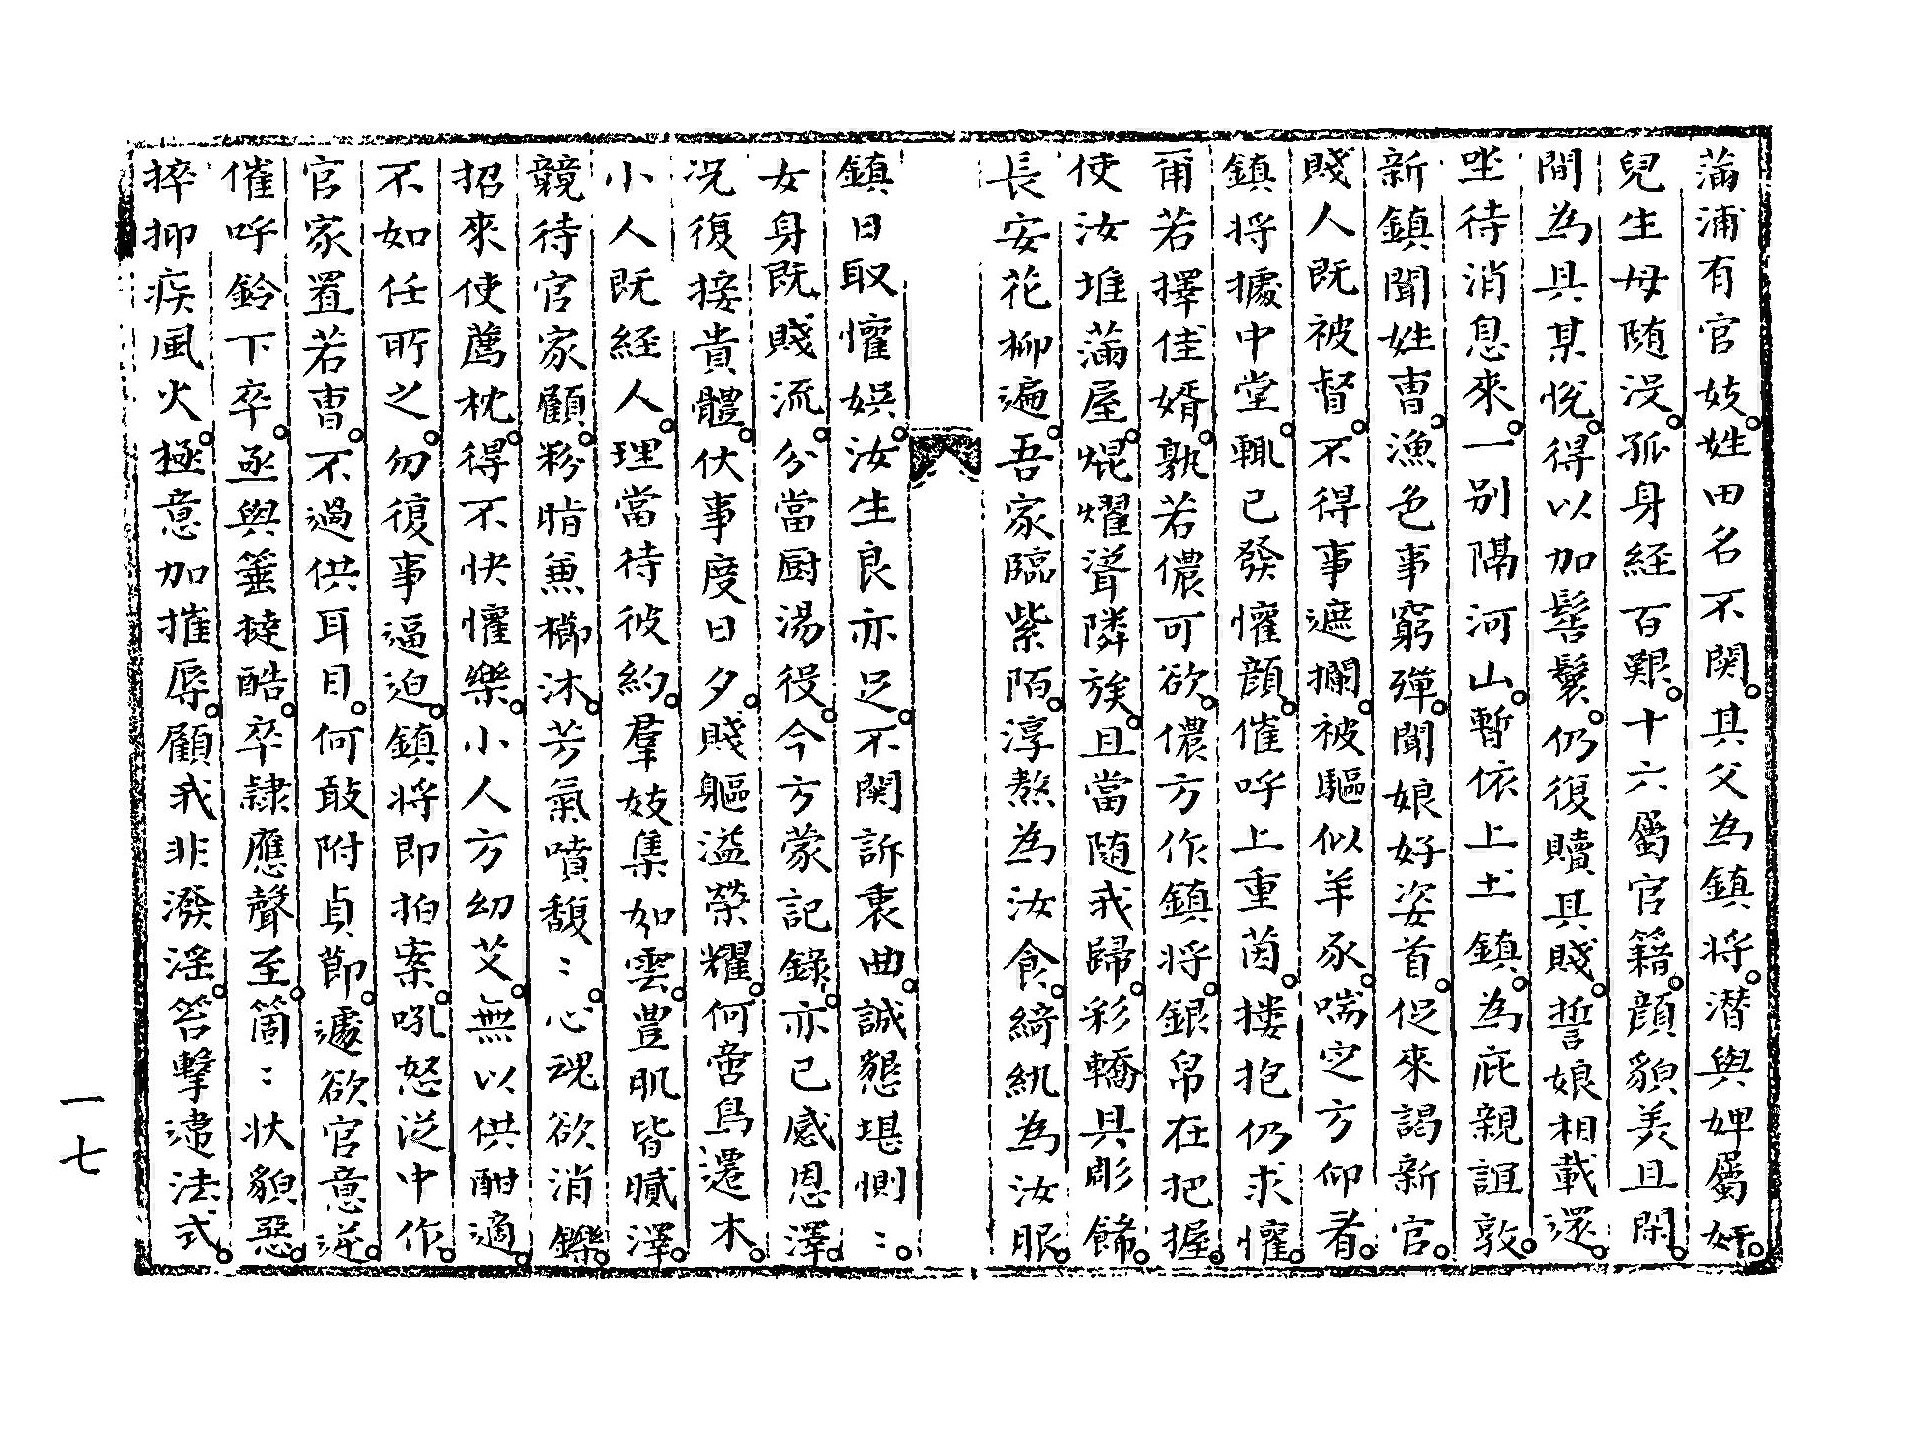 蒲浦有官妓姓田名不関其父為鎮将潜與婢屬奸
兒生母随没孤身経百艱十六屬官籍顔貌美且閑
間為具某悦得以加髻鬟仍復贖具賤誓娘相載還
坐待消息來一別隔河山暫依上土鎮為庇親誼敦
新鎮聞姓曹漁色事窮殫聞娘好姿首促來謁新官
賤人既被督不得事遮攔被驅似羊豕喘定方仰看
鎮将據中堂輒已發懽顔催呼上重茵摟抱仍求懽
爾若擇佳婿孰若儂可欲儂方作鎮将銀帛在把握
使汝堆蒲屋焜耀聳隣族且當随我歸彩轎具彫餙
長安花柳遍吾家臨紫陌淳熬為汝食綺紈為汝服
鎮日取懽娯汝生良亦足不関訴衷曲誠懇堪惻〻
女身既賤流分當厨湯役今方蒙記録亦已感恩澤
况復接貴體伏事度日夕賤軀溢榮耀何啻鳥遷木
小人既経人理當待彼約羣妓集如雲豊肌皆膩澤
競待官家顧粉脂兼櫛沐芳氣噴馥〻心魂欲消鑠
招來使薦枕得不快懽樂小人方幼艾無以供酣適
不如任所之勿復事逼迫鎮将即拍案吼怒从中作
官家置若曹不過供耳目何敢附貞節遽欲官意逆
催呼鈴下卒丞與箠撻酷卒隷應聲至箇〻状貌惡
捽抑疾風火極意加摧辱顧我非潑淫笞擊違法式
一七